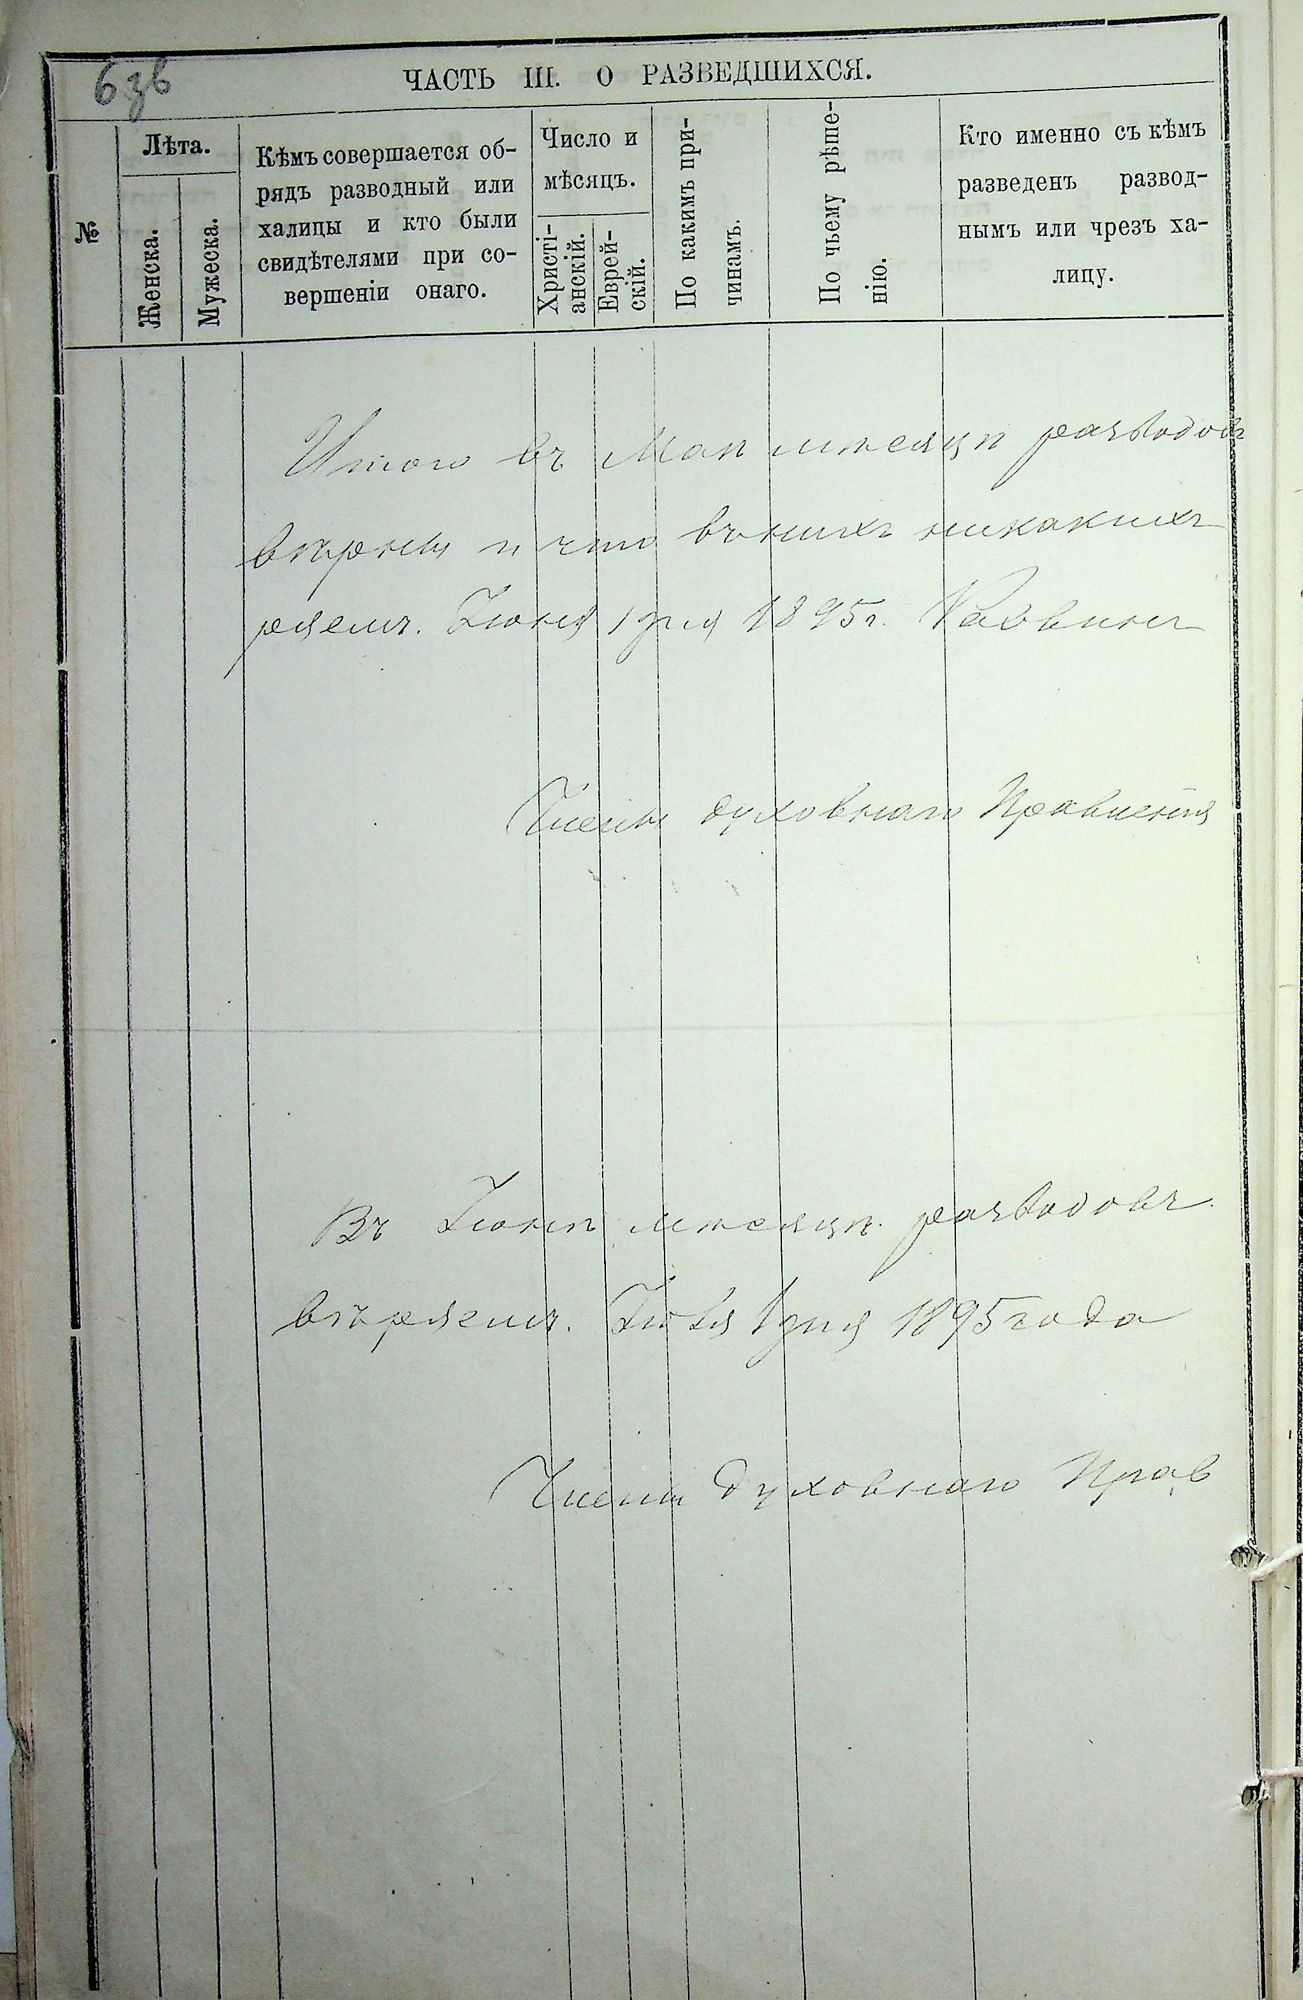 6 зв
ЧАСТЬ III. О РАЗВЕДШИХСЯ.
№
Лѣта.
Женска.
Мужеска.
Кѣмъ совершается об-
рядъ разводный или
халицы и кто были
свидѣтелями при со-
вершеніи онаго.
Число и
мѣсяцъ.
Христі-
анскій.
Еврей-
скій.
По какимъ при-
чинамъ.
По чьему рѣше-
нію.
Кто именно съ кѣмъ
разведенъ развод-
нымъ или чрезъ ха-
лицу.
Итого въ Маѣ мѣсяцѣ разводовъ
вѣрны и что въ нихъ никакихъ
ряемъ. Іюня 1 дня 1895 г. Раввинъ
Члены духовнаго Правленія
Въ Іюнѣ мѣсяцѣ разводовъ
вѣряемъ. Іюля 1 дня 1895 года
Члены духовнаго Прав